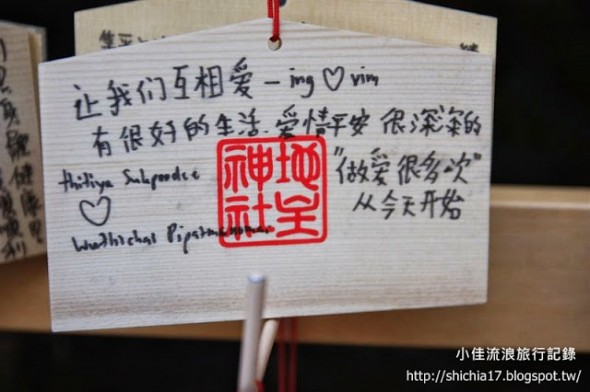 让我们互相爱 – ing ♡ vim
有很好的生活. 爱情平安 很深深的
thitiya
"做爱很多次"
♡
从今天开始
地主
神社
小佳流浪旅行記錄
http://shichia17.blogspot.tw/